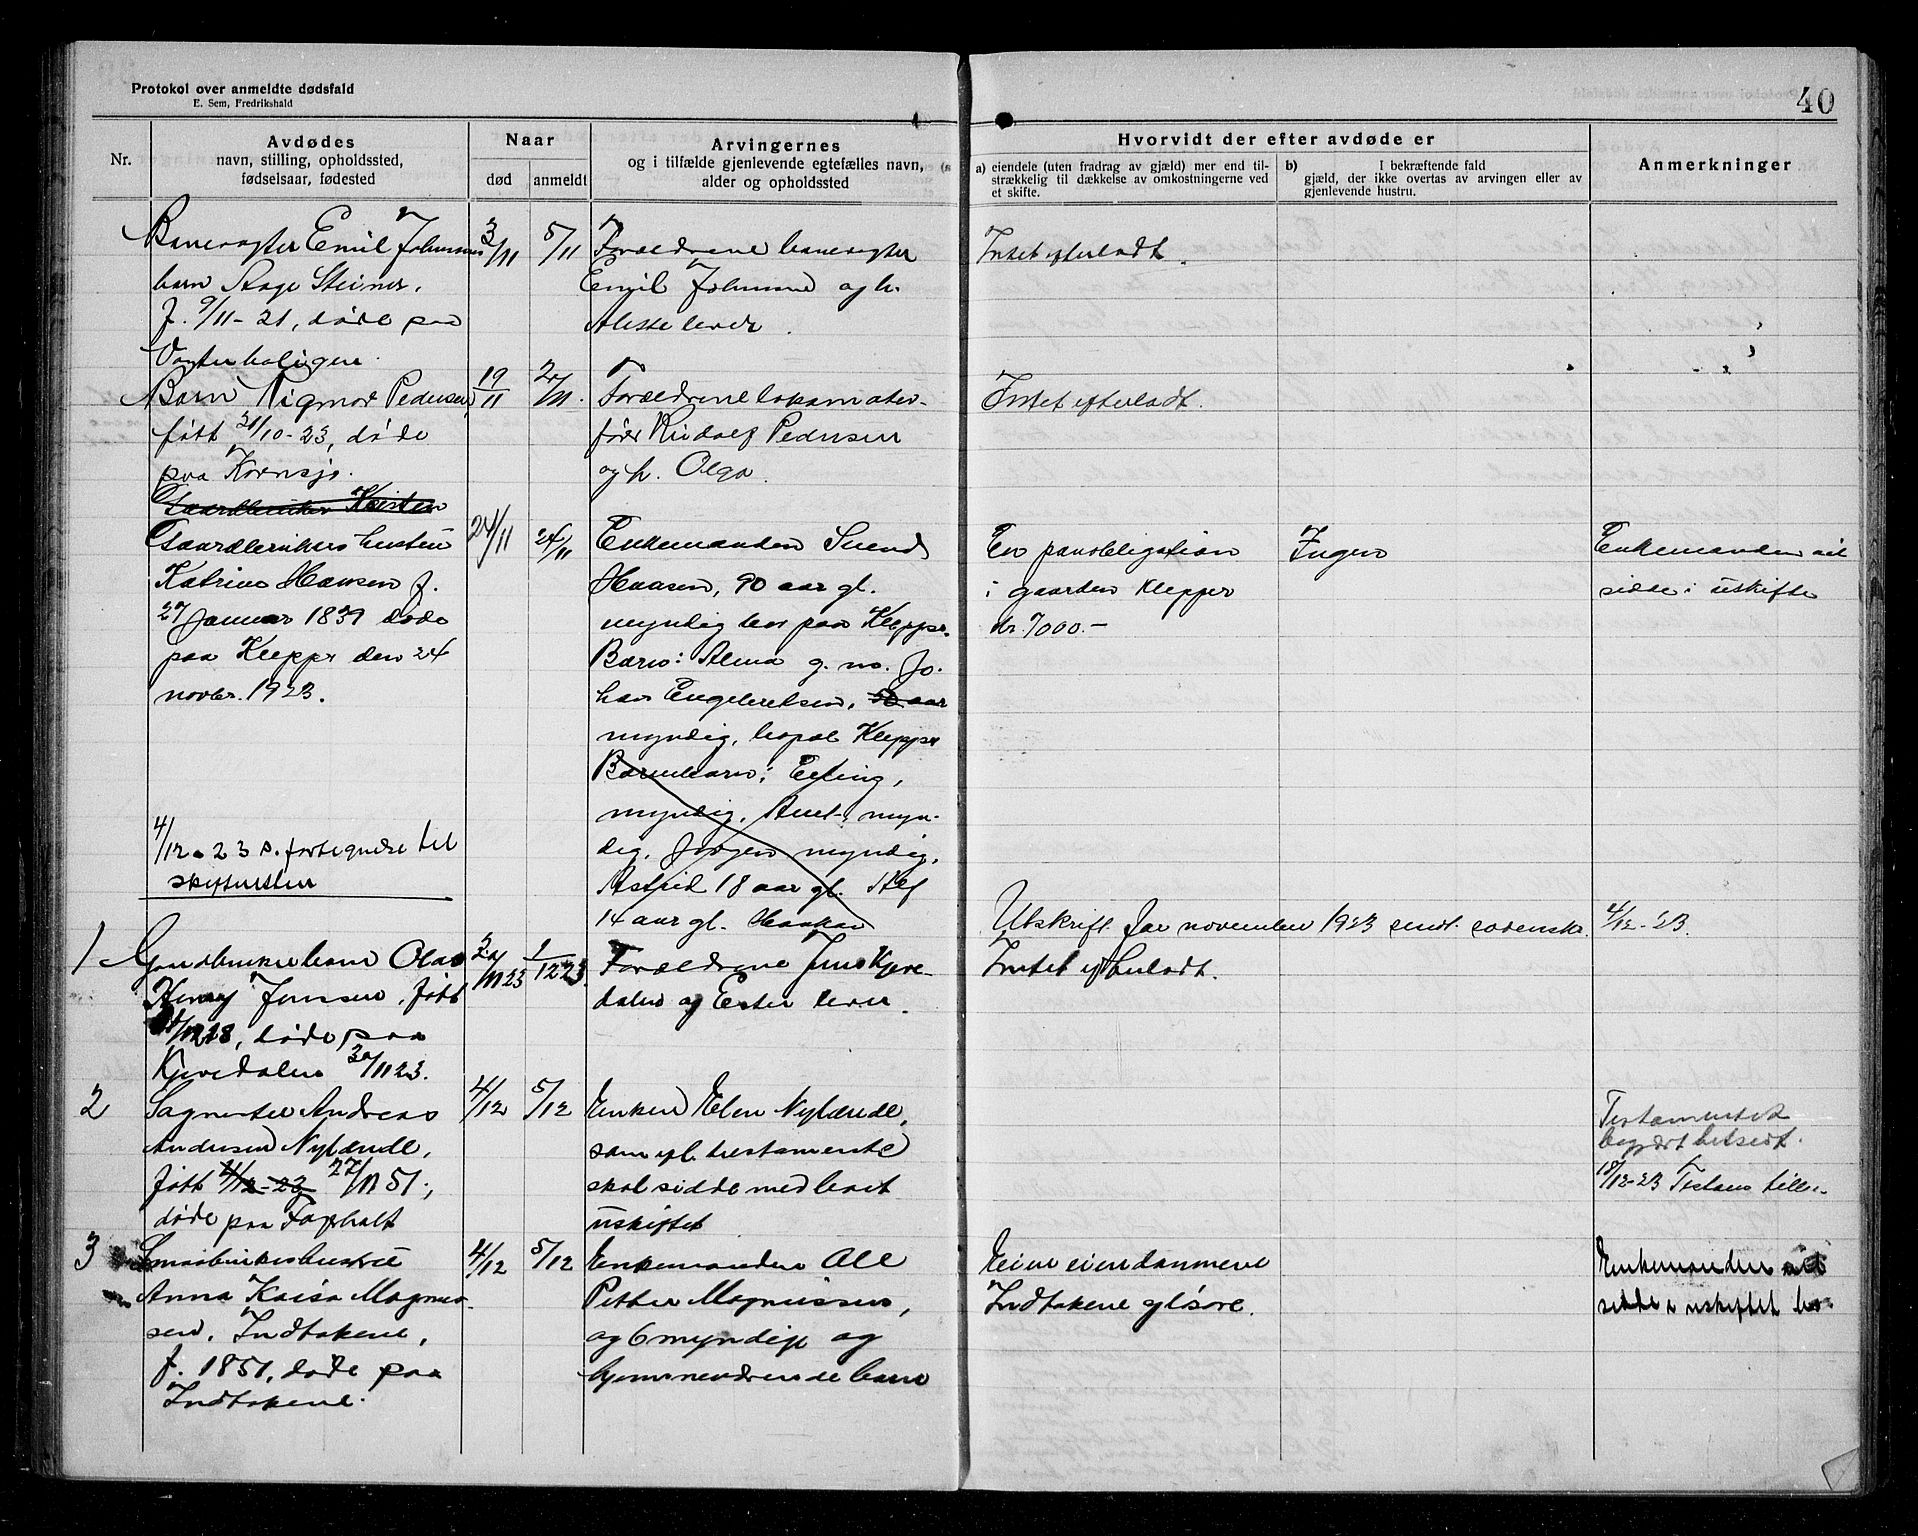 Protokol over anmeldte dødsfald
E. Sem, Fredrikshald
40
Nr.
Avdødes
navn, stilling, opholdssted,
fødselsaar, fødested
Naar
død
anmeldt
Arvingernes
og i tilfælde gjenlevende egtefælles navn,
alder og opholdssted
Hvorvidt der efter avdøde er
a) eiendele (uten fradrag av gjæld) mer end til-
strækkelig til dækkelse av omkostningerne ved
et skifte.
b) I bekræftende fald
gjæld, der ikke overtas av arvingen eller av
gjenlevende hustru.
Anmerkninger
Banevogter Emil Johannes
barn Aage Steiner,
f. 9/11-21, døde paa
Vogterboligen.
3/11
5/11
Forældrene banevogter
Emil Johannes og h.
lever.
Intet efterladt.
Barn Rigmor Pedersen,
født 31/10-23, døde
paa Kornsjø.
19/11
2/11.
Forældrene lokomotiv-
fører Rudolf Pedersen
og h. Olga.
Intet efterladt.
Gaardbruker Kristen
Gaardbrukers hustru
Katrine Hansen f.
27 Januar 1839 døde
paa Klepper den 24
novbr. 1923.
24/11
26/11
Enkemanden Svend
Hansen, 90 aar gl.
myndig bor paa Klepper.
Barn: Alma g. m. Jo-
han Engebretsen, 50 aar
myndig, bopæl Klepper
Barnebarn: Erling,
myndig, Anet, myn-
dig, Jørgen myndig,
Astrid 18 aar gl. Alf
14 aar gl. Haakon
En panobligation
i gaarden Klepper
kr. 7000.-
Ingen
Enkemanden vil
sidde i uskifte
4/12-23 s. fortegnelse til
skifteretten
Utskrift for november 1923 sendt sorensk. 4/12-23.
1
Gaardbrukerbarn Olav
Henry Jensen, født
døde paa
Kjøredalen 30/11 23.
30/11 23
1/12 23.
Forældrene Jens Kjøre-
dalen og Ester lever.
Intet efterladt.
2
Sagmester Andreas
Andersen Nylænde,
født 4/12-23 27/11 51,
døde paa Fagerholt
4/12
5/12
Enken Elen Nylænde,
som ifl. testamente
skal sidde med boet
uskiftet
Testamentet
begjært tilsendt.
18/12-23
3
Smaabrukerhustru
Anna Kaisa Magnus-
sen, Indtakene,
f. 1851, døde paa
Indtakene.
4/12
5/12
Enkemanden Ole
Petter Magnussen,
og 6 myndige og
hjemmeværende barn
Eier eiendommene
Indtakene løsøre.
Enkemanden vil
sidde i uskiftet bo